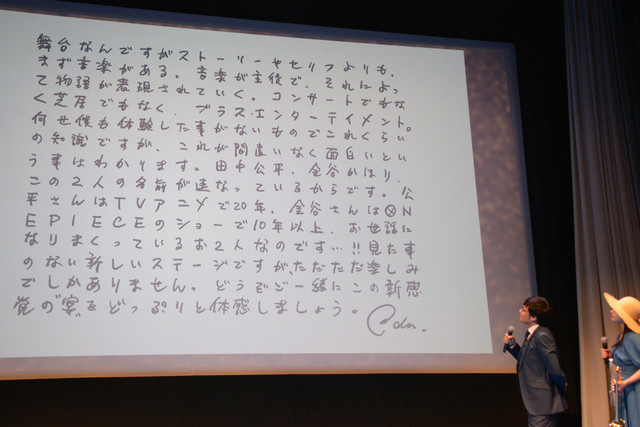 舞台なんですがストーリーやセリフよりも、
まず音楽がある。音楽が主役で、それによっ
て物語が表現されていく。コンサートでもな
く芝居でもなく、ブラス・エンターテイメント。
何せ僕も体験した事がないものでこれくらい
の知識ですが、これが間違いなく面白いとい
う事はわかります。田中公平、金谷かほり、
この2人の名前が連なっているからです。公
平さんはTVアニメで20年、金谷さんはⓍN
E PIECEのショーで10年以上、お世話に
なりまくっているお2人なのです…!!見た事
のない新しいステージですが、ただただ楽しみ
でしかありません。どうぞご一緒にこの新感
覚の"宴"をどっぷりと体感しましょう。
Oda.